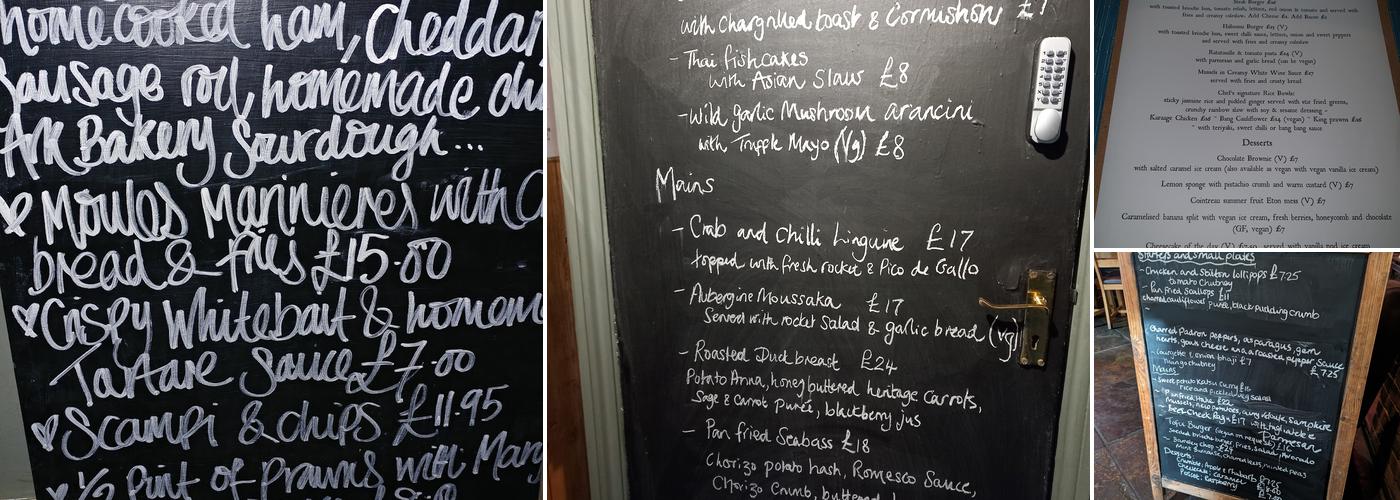 homecooked ham, Cheddar,
Sausage roll, homemade
Ark Bakery Sourdough...
Moules Marinieres with
bread & fries £15.00
Crispy Whitebait & homem
Tartare Sauce £7.00
Scampi & chips £11.95
1/2 Pint of Prawns with Mar
with chargrilled toast & Cornishon £7
- Thai fishcakes
with Asian Slaw £8
- Wild garlic Mushroom arancini
with Truffle Mayo (Vg) £8
Mains
- Crab and Chilli Linguine £17
topped with fresh rocket & Pico de Gallo
- Aubergine Moussaka £17
Served with rocket Salad & garlic bread (vg)
- Roasted Duck breast £24
Potato Anna, honey buttered heritage Carrots,
Sage & Carrot Purée, blackberry jus
- Pan fried Seabass £18
Chorizo potato hash, Romesco Sauce,
Chorizo Crumb, buttered
with toasted brioche bun, tomato relish, lettuce, red onion & tomato and served with
fries and creamy coleslaw. Add Cheese £1. Add Bacon £2
Halloumi Burger £15 (V)
with toasted brioche bun, sweet chilli sauce, lettuce, onion and sweet peppers
and served with fries and creamy coleslaw
Ratatouille & tomato pasta £14 (V)
with parmesan and garlic bread (can be vegan)
Mussels in Creamy White Wine Sauce £17
served with fries and crusty bread
Chef's signature Rice Bowls:
sticky jasmine rice and pickled ginger served with stir fried greens,
crunchy rainbow slaw with soy & sesame dressing -
Karaage Chicken £16 ~ Bang Cauliflower £14 (vegan) ~ King prawns £16
~ with teriyaki, sweet chilli or bang bang sauce
Desserts
Chocolate Brownie (V) £7
with salted caramel ice cream (also available as vegan with vegan vanilla ice cream)
Lemon sponge with pistachio crumb and warm custard (V) £7
Cointreau summer fruit Eton mess (V) £7
Caramelised banana split with vegan ice cream, fresh berries, honeycomb and chocolate
(GF, vegan) £7
Cheesecake of the day (V) £7.50, served with vanilla pod ice cream
Starters and small plates
- Chicken and Stilton lollipops £7.25
tomato Chutney
- Pan fried Scallops £11
charred cauliflower purée, black pudding crumb
Charred Padron peppers, asparagus, gem
hearts, goats cheese and a roasted pepper Sauce
£7.25
- Courgette & onion bhaji £7
Mango chutney
Mains
- Sweet potato Katsu Curry £16
rice and pickled veg Salad
fried Hake £22
Mussels, new potatoes, curry veloute, Samphire
- Beef Cheek Ragu £17 with tagliatelle &
Parmesan
Tofu Burger (vegan on request) £16
Seeded brioche burger, Fries, Salad, Avocado
- Barnsley Chop - £24
Desserts:
Crumble: Apple & Rhubarb £7.25
Cheesecake: Caramel
Raspberry £7.50